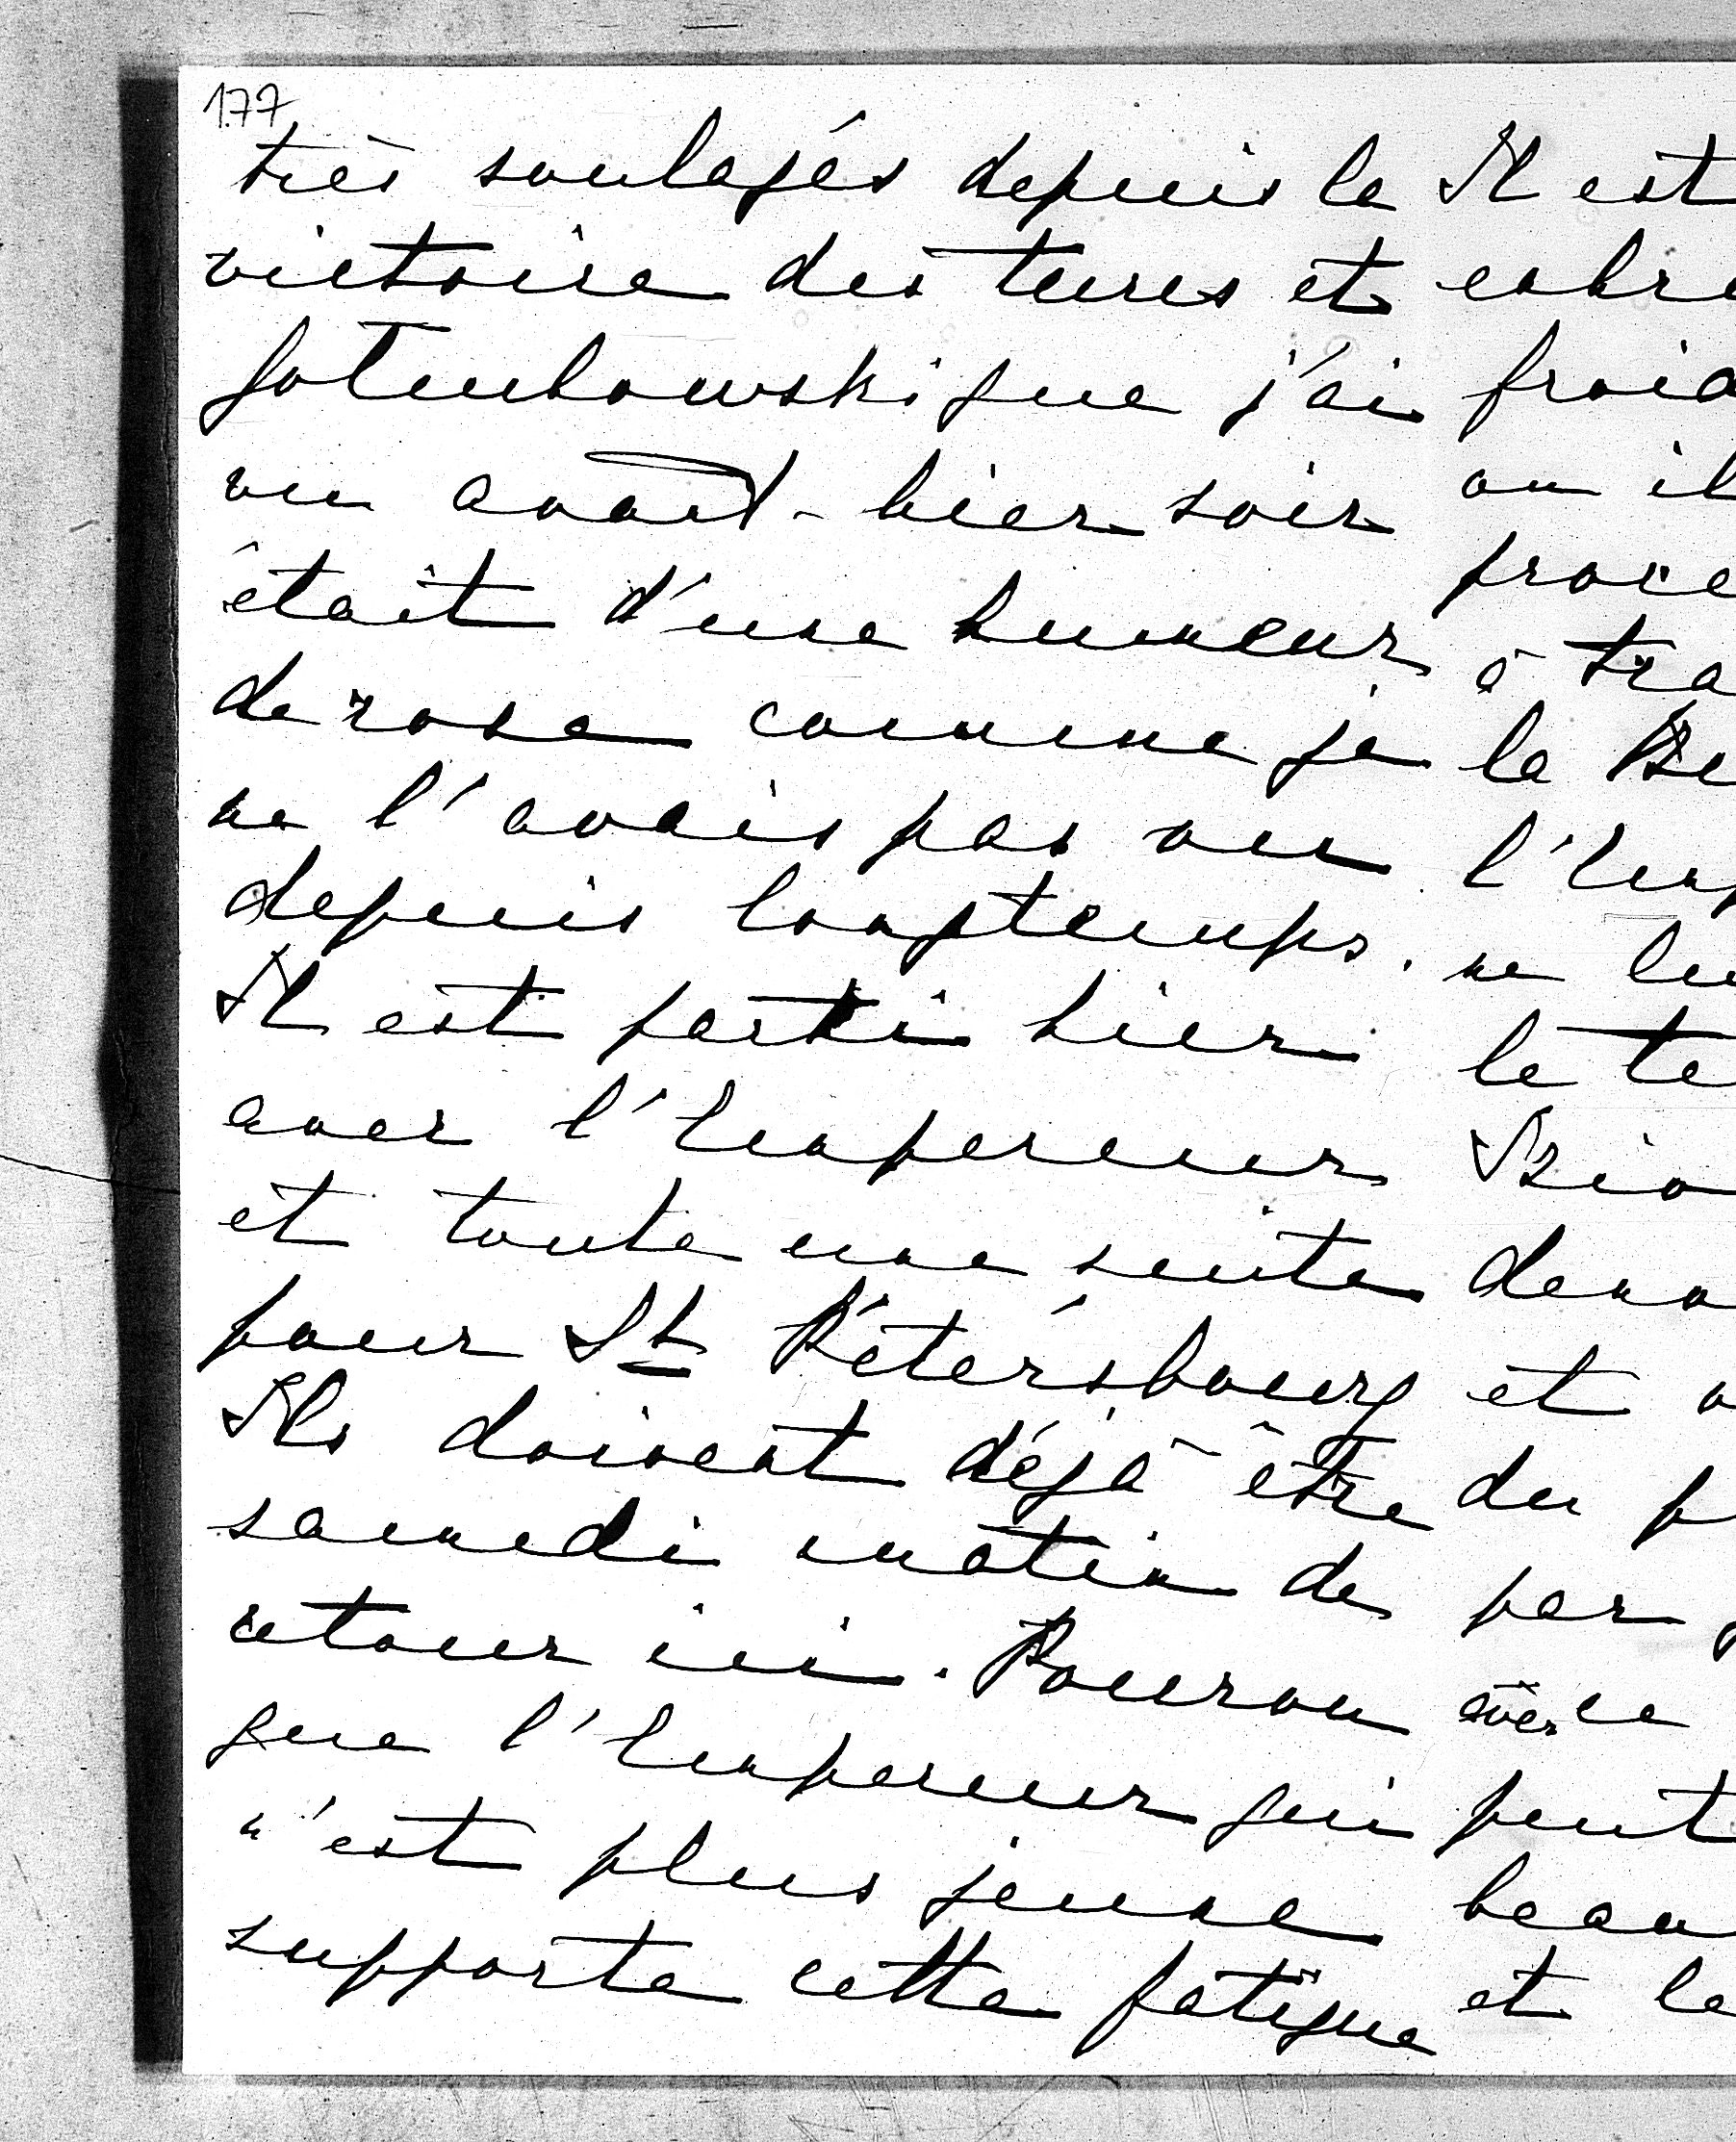 177
très soulagés depuis la
victoire des turcs et
Gotuchowski que j'ai
vu avant-hier soir
était d'une humeur
de rose comme je
ne l'avais pas vu
depuis longtemps.
Il est parti hier
avec l'Empereur
et toute une suite
pour St Pétersbourg
Ils doivent déjà être
samedi matin de
retour ici. Pourvu
que l'Empereur qui
n'est plus jeune
supporte cette fatigue
Il est
froid
ou il
à tra
la Be
l'Emp
ne lu
le te
et
du p
par
avec ce
peut
beau
et le